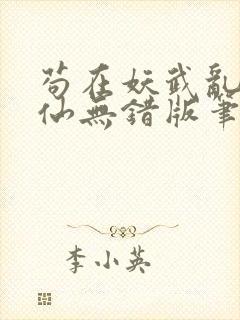 苟在妖武亂
仙無錯版筆
李小英